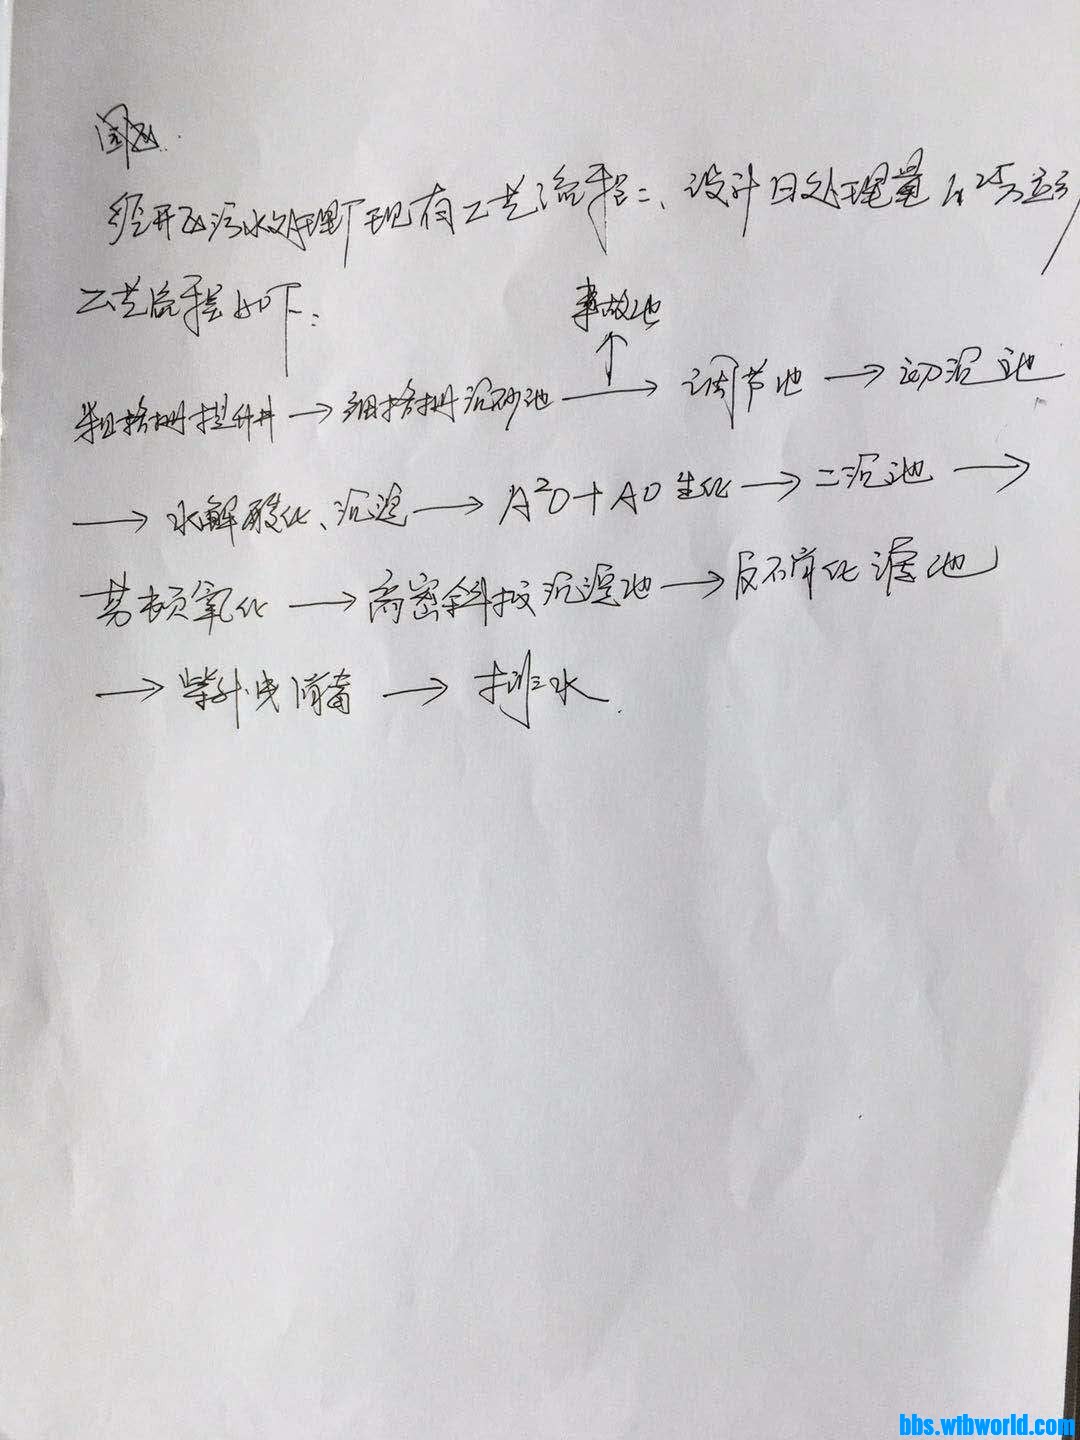 经开区污水处理厂现有工艺流程二、设计日处理量
工艺流程如下：
事故池
粗格栅提升井→细格栅沉砂池→调节池→初沉池
→水解酸化、沉淀→A²O+AO生化→二沉池→
芬顿氧化→高密斜板沉淀池→反硝化滤池
→紫外线消毒→排水.
bbs.wibworld.com